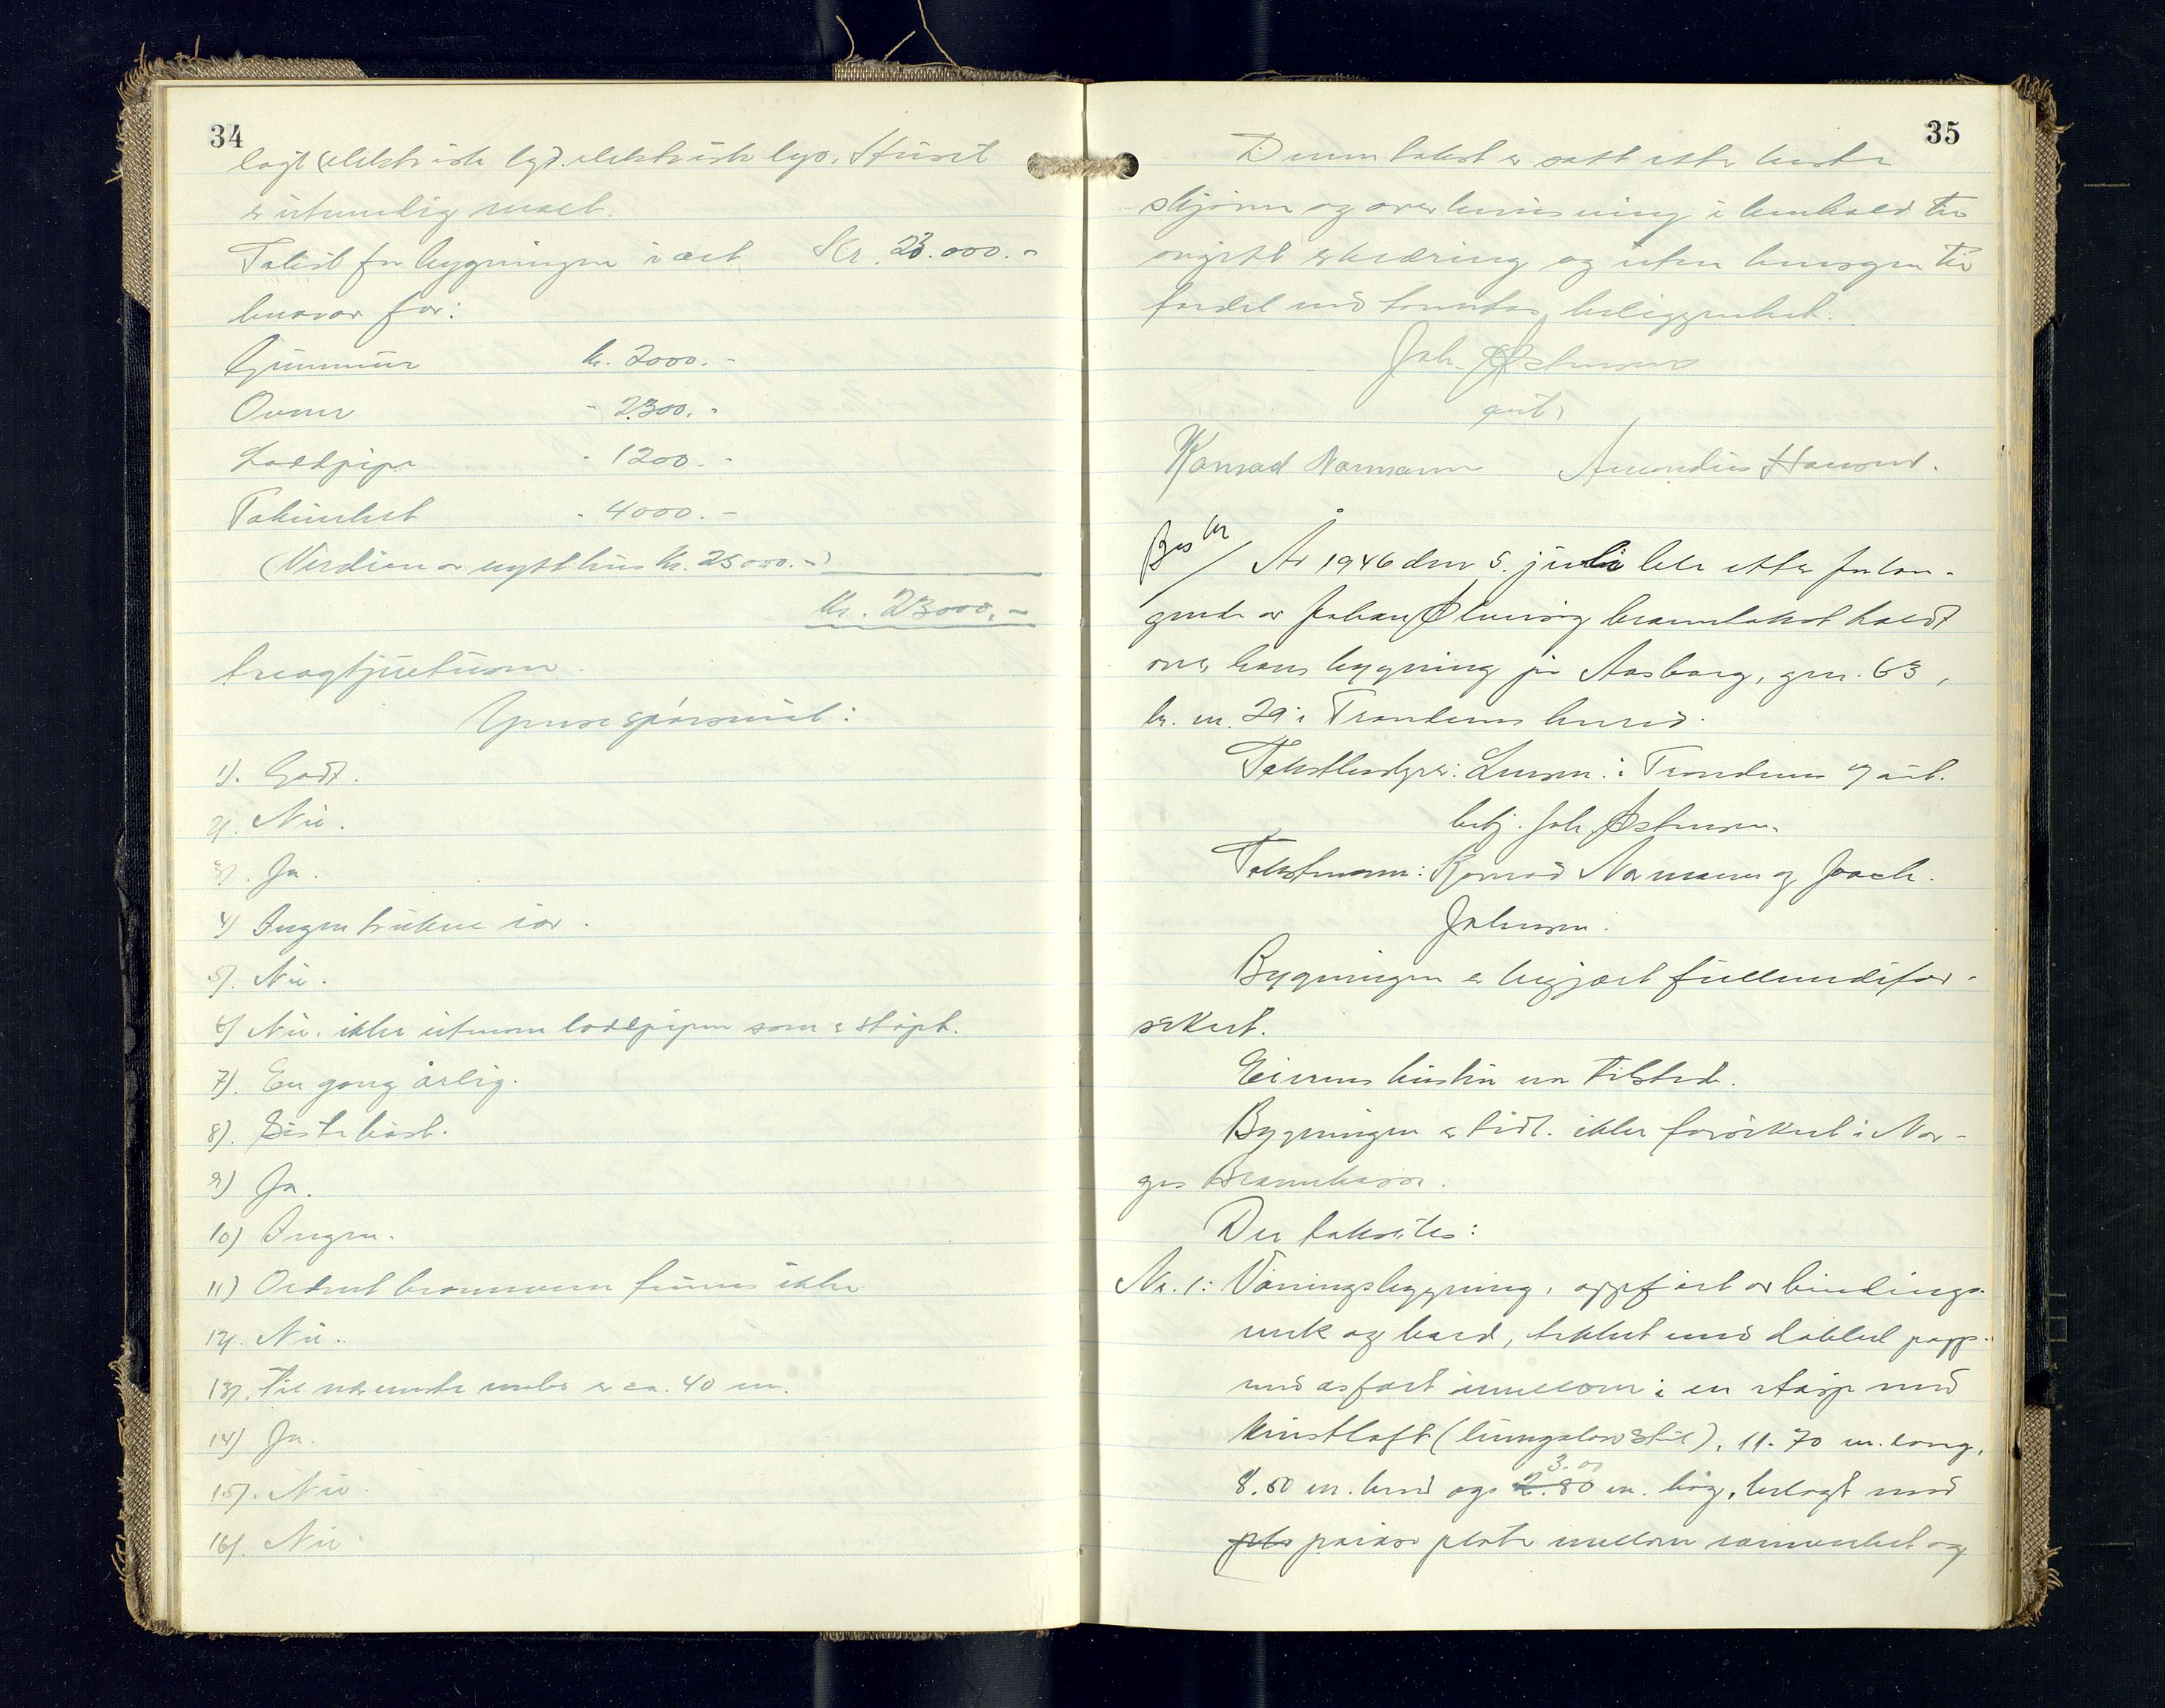 34
lagt (elektrisk lyd. elektrisk lys. Huset
er utvendig malt.
Takst for bygningen i alt Kr. 23.000.-
herav for:
Grunnmur kr. 2000.-
Ovner - 2300.-
Loddpipe - 1200.-
Takverket - 4000.-
(Verdien av nytt hus kr. 25000.-)
Kr. 23000.-
treogtjuetusen.
Ymse spørsmål:
1). Godt.
2). Nei.
3). Ja.
4) Ingen trekne rør.
5). Nei.
6) Nei. ikke utenom loddpipen som er støpt.
7). En gang årlig.
8). Siste høst.
9) Ja.
10) Ingen.
11) Ordnet brannvern finnes ikke
12). Nei.
13). Til nærmeste nabo er ca. 40 m.
14) Ja.
15). Nei.
16). Nei.
35
Denne takst er satt etter beste
skjønn og overbevisning i henhold til
avgitt erklæring og uten hensyn til
fordel ved tomtas beliggenhet.
Joh. Østensen
aut.
Konrad Normann Amandus Hansen.
År 1946 den 5. juli ble etter forlan-
gende av Johan branntakst holdt
over hans bygning på Aasbarg, gnr. 63,
br. nr. 29 i Trondenes herred.
Takstbestyrer: Lensm. i Trondenes v/ aut.
betj. Joh. Østensen.
Takstmenn: Konrad Normann og Joach.
Johnsen.
Bygningen er begjært fullverdifor-
sikret.
Eierens hustru var tilstede.
Bygningen er tidl. ikke forsikret i Nor-
ges Brannkasse.
Der taksertes:
Nr. 1: Våningsbygning, oppført av bindings-
verk og bord, tekket med dobbel papp
med asfalt imellom i en etasje med
kvistloft (bungalowstil), 11.70 m. lang,
8.50 m. bred og 2.80 3.00 m. høg, belagt med
plate mellom rammverket og